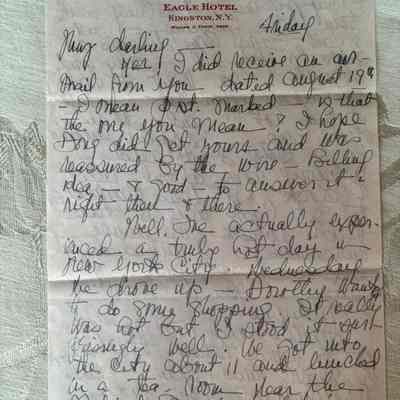 EAGLE HOTEL
KINGSTON, N.Y.
Friday
My darling —
Yes, I did receive an air-
mail from you dated August 19th
— I mean post marked — is that
the one you mean? I hope
did get yours and was
reassured by the wire —
idea — & good — to answer it
right then & there.
Well. I've actually exper-
ienced a truly hot day in
New York City. Wednesday
we drove up — Dorothy wanted
to do some shopping. It really
was hot but I stood it sur-
prisingly well. We got into
the city about 11 and lunched
in a tea-room near the